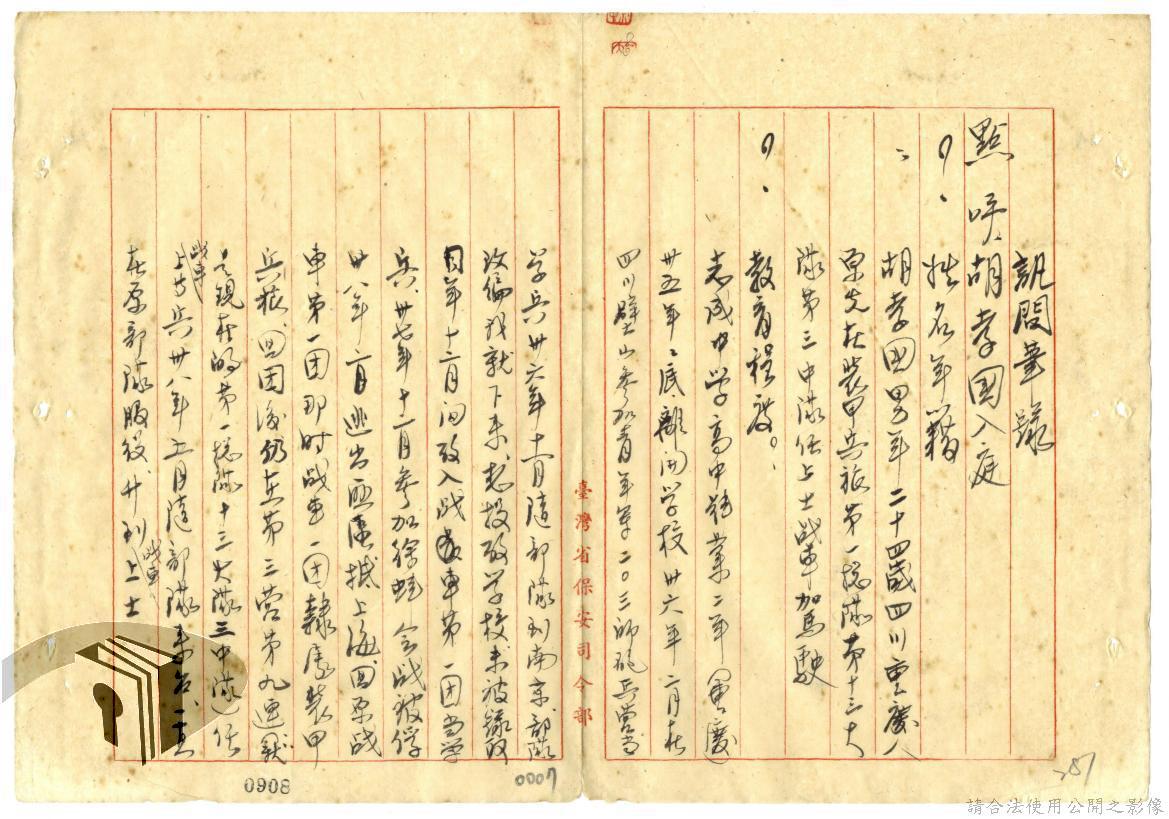 訊問筆錄
點呼胡孝國入庭
問：姓名年籍
：胡孝國男年二十四歲四川重慶人
原先在裝甲兵旅第一總隊第十三大
隊第三中隊任上士战車加駕駛
問：教育程度。
志成中学高中肄業二年重慶
卅五年底離開学校卅六年二月在
四川璧山參加青年軍二〇三師砲兵營當
臺灣省保安司令部
学兵卅六年十一月隨部隊到南京部隊
改編我就下來想投考学校未被錄取
同年十二月间考入战車第一团当学
兵、卅七年十一月參加徐蚌会战被俘
卅八年二月逃出匪區抵上海回原战
車第一团那时战車一团隸屬裝甲
兵旅、回团後仍在第三营第九連就
是現在的第一總隊十三大隊三中隊任
战車上等兵卅八年五月隨部隊來台、一直
在原部隊服役、升到战車上士
0007
0908
287
請合法使用公開之影像